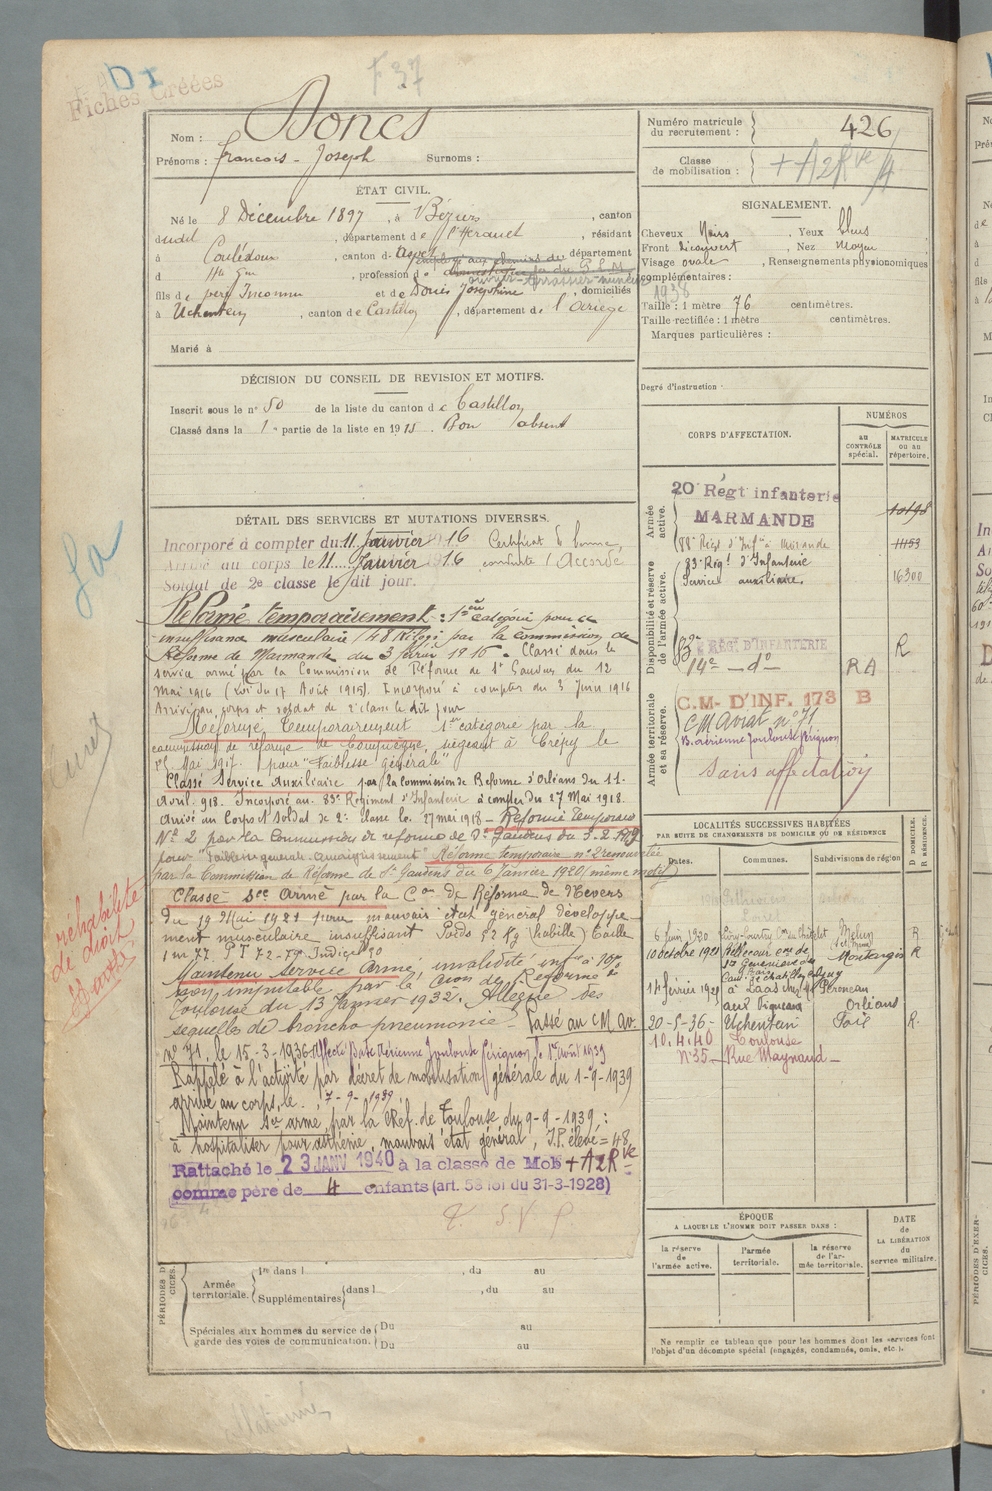 Fiches Créées
D1
F 37
Nom : Doncs
Prénoms : françois - Joseph Surnoms :
Numéro matricule du recrutement : 426
Classe de mobilisation : + A2Rve/4
ÉTAT CIVIL.
Né le 8 Décembre 1897, à Béziers, canton
dudit, département de l'Hérault, résidant
à Coulédoux, canton d'Aspet, département
d Hte Gne, profession de
fils de père Inconnu et de Joséphine, domiciliés
à Uchentein, canton de Castillon, département de l'Ariège
Marié à
SIGNALEMENT.
Cheveux Noirs, Yeux bleus
Front découvert, Nez Moyen
Visage ovale, Renseignements physionomiques
complémentaires :
1938
Taille : 1 mètre 76 centimètres.
Taille rectifiée : 1 mètre centimètres.
Marques particulières :
Degré d'instruction :
DÉCISION DU CONSEIL DE REVISION ET MOTIFS.
Inscrit sous le n° 50 de la liste du canton de Castillon
Classé dans la 1e partie de la liste en 1915. Bon absent
DÉTAIL DES SERVICES ET MUTATIONS DIVERSES.
Incorporé à compter du 11 Janvier 1916 Certificat de bonne
Arrivé au corps le 11 Janvier 1916 conduite "Accordé
Soldat de 2e classe le dit jour.
Réformé temporairement : 1ère catégorie pour
insuffisance musculaire (48 Kilogs) par la commission de
Réforme de Marmande du 3 février 1916. Classé dans le
service armé par la Commission de Réforme de St Gaudens du 12
Mai 1916 (Loi du 17 Août 1915). Incorporé à compter du 3 Juin 1916
Arrivé au corps et soldat de 2e classe le dit jour
Réformé Temporairement 1ère catégorie par la
commission de réforme de Compiègne, siégeant à Crépy le
Mai 1917. pour "Faiblesse générale"
Classé Service Auxiliaire par la Commission de Réforme d'Orléans du 11
Avril 918. Incorporé au 83e Régiment d'Infanterie à compter du 27 Mai 1918.
Arrivé au Corps et Soldat de 2e Classe le 27 mai 1918 - Réformé Temporaire
N° 2 par la Commission de réforme de St Gaudens du 3-2-1919
pour "Faiblesse générale - amaigrissement" Réforme temporaire n° 2 renouvelée
par la Commission de Réforme de St Gaudens du 6 Janvier 1920 (même motif)
Classé sce armé par la Con de Réforme de Nevers
du 19 Mai 1921 pour mauvais état général développe-
ment musculaire insuffisant Poids 52 Kg (habillé) taille
1 m 77. PT 72-79 Indice 50
Maintenu service Armé, invalidité infre à 10%
non imputable par la Cion de Réforme de
Toulouse du 13 Janvier 1932. Allègue des
séquelles de broncho pneumonie - Passé au C M Av.
n° 71, le 15-3-1936 Affecté Base Aérienne Toulouse Pérignon le 1er août 1939
Rappelé à l'activité par décret de mobilisation générale du 1-9-1939
arrivé au corps, le 7-9-1939
Maintenu sce armé par la C Réf. de Toulouse du 9-9-1939, :
à hospitaliser pour asthénie, mauvais état général, I.P. élevé = 48
Rattaché le 23 JANV 1940 à la classe de Mob + A2Rve
comme père de 4 enfants (art. 58 loi du 31-3-1928)
T. S V P
réhabilité de droit
CORPS D'AFFECTATION.
NUMÉROS
AU CONTRÔLE spécial.
MATRICULE ou au répertoire.
Armée active.
20e Régt infanterie
MARMANDE
10198
88e Régt d'Infie à Mirande 11153
83e Régt d'Infanterie
Service auxiliaire. 16300
Disponibilité et réserve de l'armée active.
RÉGt D'INFANTERIE R
14e - do - RA
Armée territoriale et sa réserve.
C.M. D'INF. 173 B
CM Aviat. n° 71
B. aérienne Toulouse Pérignon
Sans affectation
LOCALITÉS SUCCESSIVES HABITÉES
PAR SUITE DE CHANGEMENTS DE DOMICILE OU DE RÉSIDENCE.
Dates. Communes. Subdivisions de région
D DOMICILE. R RÉSIDENCE.
Loiret
6 juin 1920 Melun R
10 octobre 1921 Montargis R
14 février 1929 à Laas
aux Vigneaux Orléans
20-5-36- Uchentein Foix R.
10.4.40 Toulouse
N° 35 - Rue Maynard -
PÉRIODES D'EXERCICES.
Armée territoriale.
1re dans l , du au
Supplémentaires dans l , du au
Spéciales aux hommes du service de garde des voies de communication.
Du au
Du au
ÉPOQUE
A LAQUELLE L'HOMME DOIT PASSER DANS :
la réserve de l'armée active.
l'armée territoriale.
la réserve de l'armée territoriale.
DATE de LA LIBÉRATION du service militaire.
Ne remplir ce tableau que pour les hommes dont les services font
l'objet d'un décompte spécial (engagés, condamnés, omis, etc.).